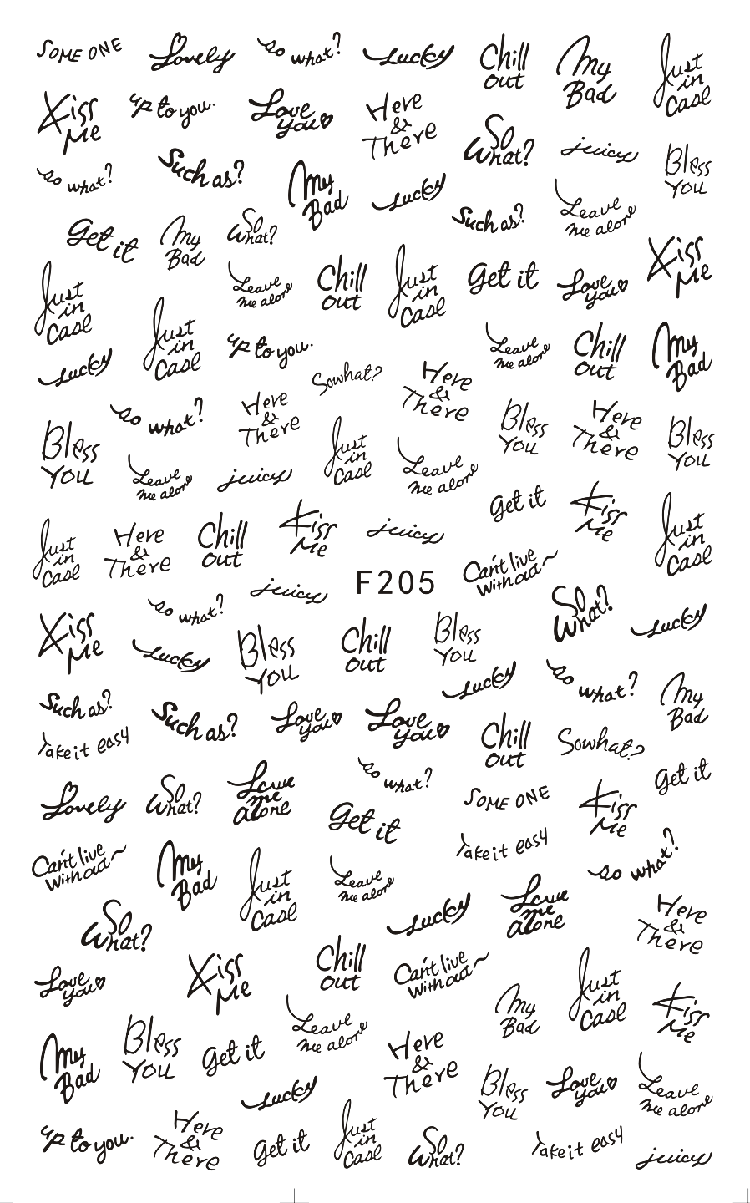 SOME ONE
Lovely
So what?
Lucky
Chill
out
My
Bad
Just
in
Case
Kiss
Me
up to you.
Love
you
Here
&
There
So
What?
juicy
Bless
YOU
So what?
Such as?
My
Bad
Lucky
Such as?
Leave
me alone
Get it
My
Bad
So
What?
Just
in
Case
Leave
me alone
Chill
out
Just
in
Case
Get it
Love
you
Kiss
Me
Lucky
Just
in
Case
up to you.
Sowhat?
Here
&
There
Leave
me alone
Chill
out
My
Bad
Bless
YOU
So what?
Here
&
There
Just
in
Case
Bless
YOU
Here
&
There
Bless
YOU
Leave
me alone
juicy
Leave
me alone
Get it
Kiss
Me
Just
in
Case
Just
in
Case
Here
&
There
Chill
out
Kiss
Me
juicy
juicy
F205
Can't live
without~
So
What?
Lucky
Kiss
Me
So what?
Lucky
Bless
YOU
Chill
out
Bless
YOU
Lucky
So what?
My
Bad
Such as?
Such as?
Love
you
Love
you
Chill
out
Sowhat?
Take it easy
Get it
Lovely
So
What?
Leave
me
alone
So what?
Get it
SOME ONE
Kiss
Me
Can't live
without~
My
Bad
Just
in
Case
Leave
me alone
Take it easy
So what?
So
What?
Lucky
Leave
me
alone
Here
&
There
Love
you
Kiss
Me
Chill
out
Can't live
without~
My
Bad
Just
in
Case
Kiss
Me
My
Bad
Bless
YOU
Get it
Leave
me alone
Here
&
There
Bless
YOU
Love
you
Leave
me alone
Lucky
up to you.
Here
&
There
Get it
Just
in
Case
So
What?
Take it easy
juicy